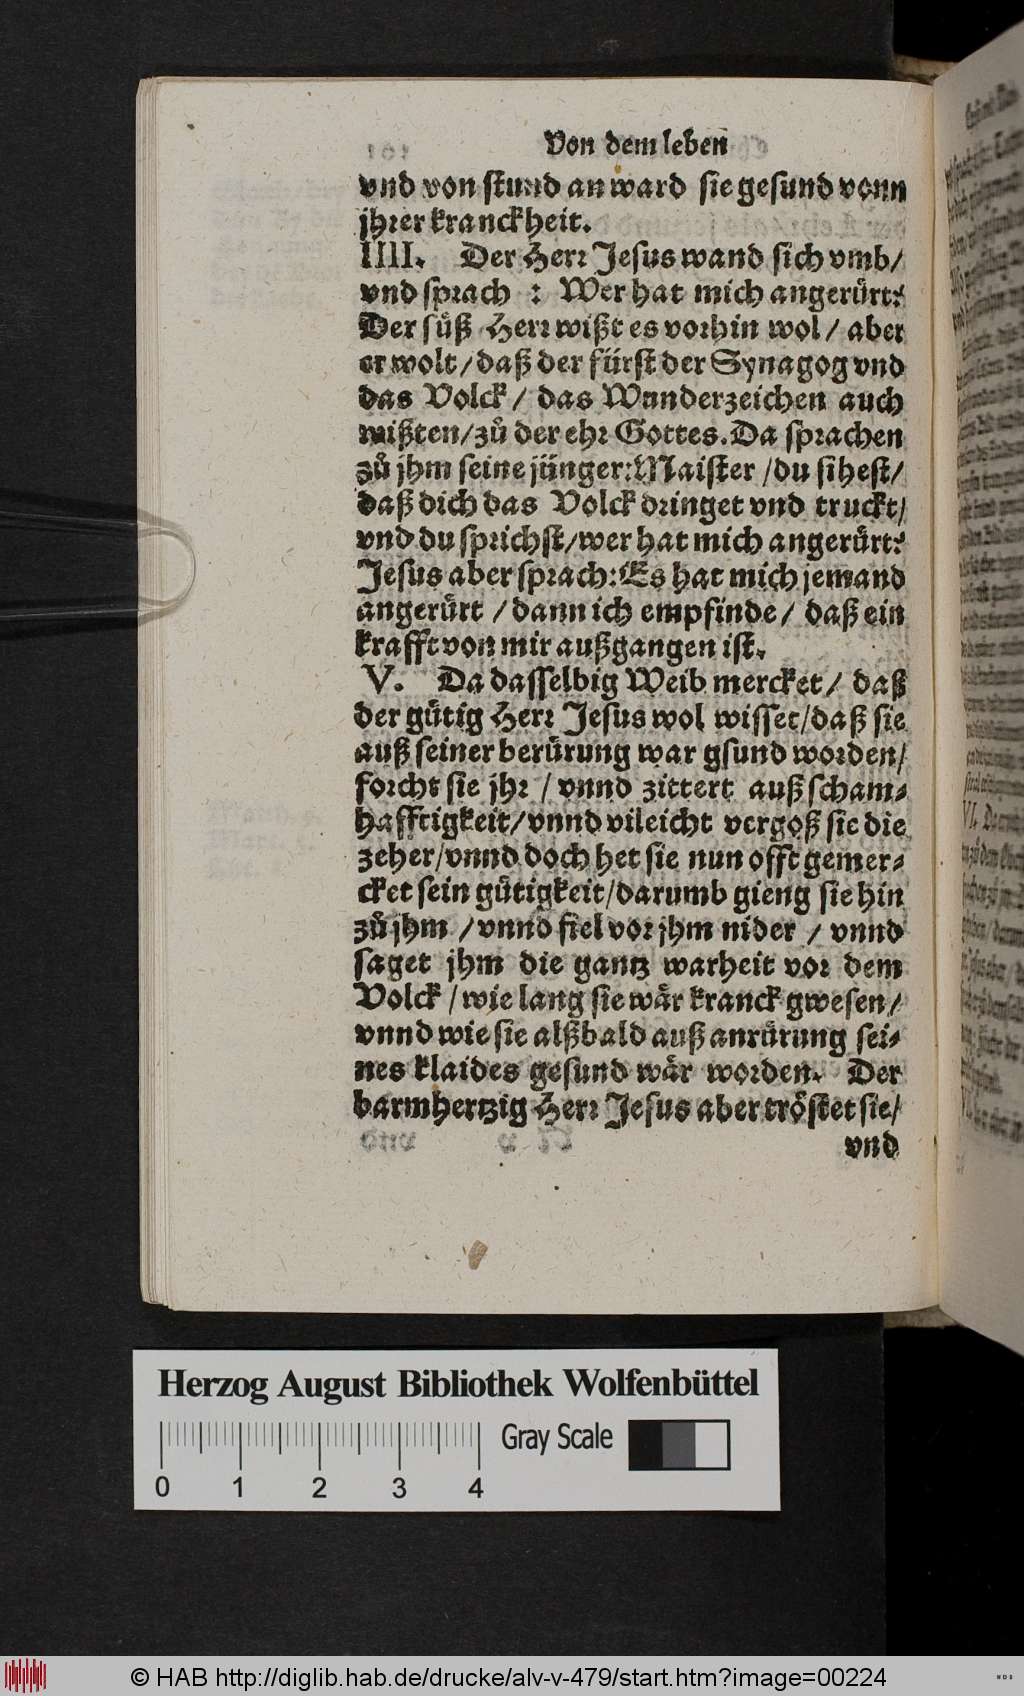 Von dem leben
vnd von stund an ward sie gesund vonn
jhrer kranckheit.
IIII. Der Herr Jesus wand sich vmb/
vnd sprach : Wer hat mich angerürt?
Der süß Herr wißt es vorhin wol / aber
er wolt / daß der fürst der Synagog vnd
das Volck / das Wunderzeichen auch
wißten/zů der ehr Gottes. Da sprachen
zů jhm seine jünger: Maister /du sihest/
daß dich das Volck dringet vnd truckt/
vnd du sprichst/wer hat mich angerürt?
Jesus aber sprach: Es hat mich jemand
angerürt / dann ich empfinde / daß ein
krafft von mir außgangen ist.
V. Da dasselbig Weib mercket / daß
der gütig Herr Jesus wol wisset/daß sie
auß seiner berürung war gsund worden/
forcht sie jhr / vnnd zittert auß scham-
hafftigkeit/vnnd vileicht vergoß sie die
zeher/vnnd doch het sie nun offt gemer-
cket sein gütigkeit/darumb gieng sie hin
zů jhm / vnnd fiel vor jhm nider / vnnd
saget jhm die gantz warheit vor dem
Volck / wie lang sie wär kranck gwesen/
vnnd wie sie alßbald auß anrürung sei-
nes klaides gesund wär worden. Der
barmhertzig Herr Jesus aber tröstet sie/
vnd
Herzog August Bibliothek Wolfenbüttel
Gray Scale
0 1 2 3 4
© HAB http://diglib.hab.de/drucke/alv-v-479/start.htm?image=00224